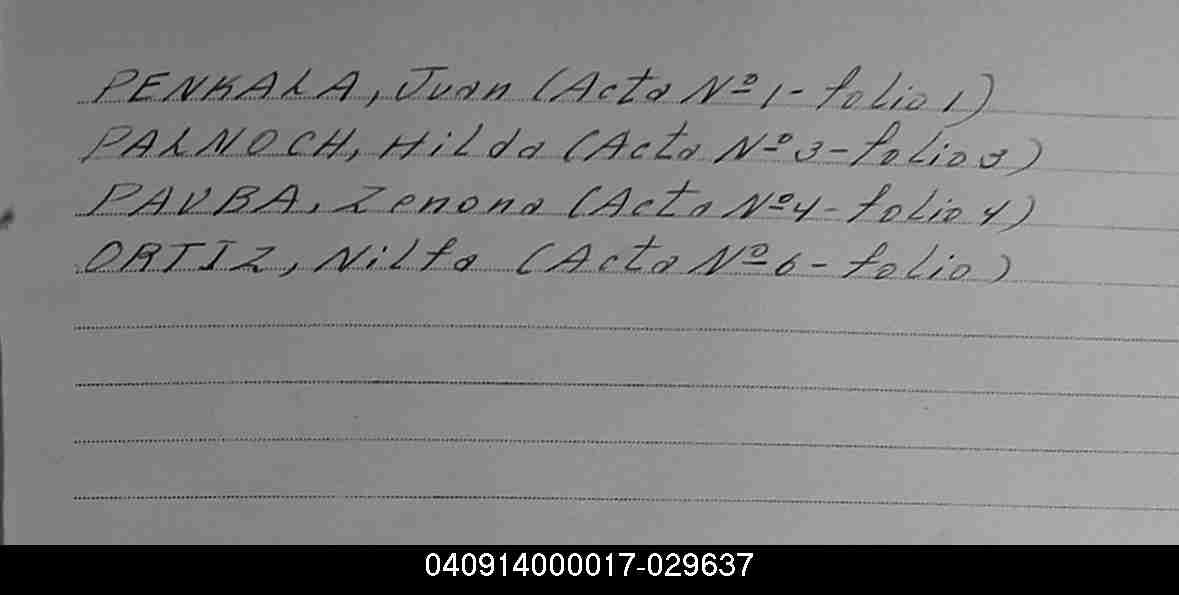 PENKALA, Juan (Acta Nº 1 - folio 1)
PALNOCH, Hilda (Acta Nº 3 - folio 3)
PAUBA, Zenona (Acta Nº 4 - folio 4)
ORTIZ, Nilfa (Acta Nº 6 - folio)
040914000017-029637